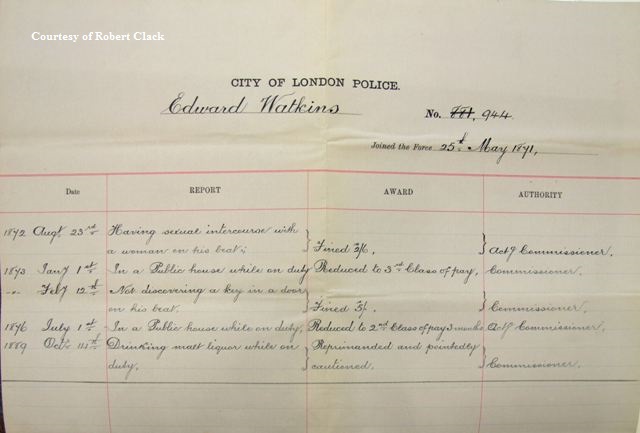 Courtesy of Robert Clack
CITY OF LONDON POLICE.
Edward Watkins
No. 881, 944.
Joined the Force 25th May 1871,
Date REPORT AWARD AUTHORITY
1872 Augt 23rd Having sexual intercourse with
a woman on his beat; Fined 2/6, Actg Commissioner,
1873 Jany 1st In a Public house while on duty Reduced to 3rd Class of pay, Commissioner.
-"- Feby 12th Not discovering a key in a door
on his beat. Fined 5/. Commissioner.
1876 July 1st In a Public house while on duty, Reduced to 2nd Class of pay 3 months Actg Commissioner.
1889 Octr Drinking malt liquor while on Reprimanded and pointedly
duty, cautioned. Commissioner.